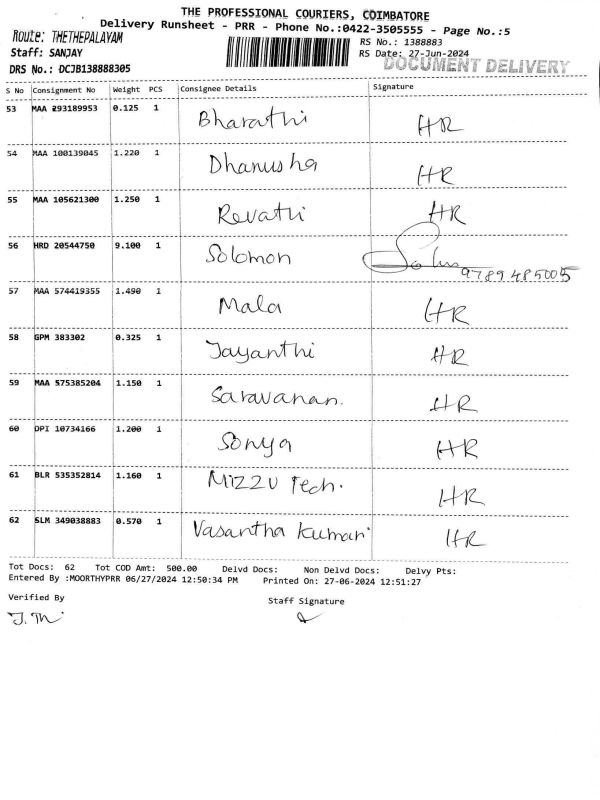 THE PROFESSIONAL COURIERS, COIMBATORE
Delivery Runsheet - PRR - Phone No.:0422-3505555 - Page No.:5
Route: THETHEPALAYAM
RS No.: 1388883
Staff: SANJAY
RS Date: 27-Jun-2024
DOCUMENT DELIVERY
DRS No.: DCJB138888305
S No Consignment No Weight PCS Consignee Details Signature
53 MAA 293189953 0.125 1 Bharathi HR
54 MAA 100139045 1.220 1 Dhanusha HR
55 MAA 105621300 1.250 1 Revathi HR
56 HRD 20544750 9.100 1 Solomon
9789485005
57 MAA 574419355 1.490 1 Mala HR
58 GPM 383302 0.325 1 Jayanthi HR
59 MAA 575385204 1.150 1 Saravanan. HR
60 DPI 10734166 1.200 1 Sonya HR
61 BLR 535352814 1.160 1 Mizzu Tech. HR
62 SLM 349038883 0.570 1 Vasantha Kumari HR
Tot Docs: 62 Tot COD Amt: 500.00 Delvd Docs: Non Delvd Docs: Delvy Pts:
Entered By :MOORTHYPRR 06/27/2024 12:50:34 PM Printed On: 27-06-2024 12:51:27
Verified By Staff Signature